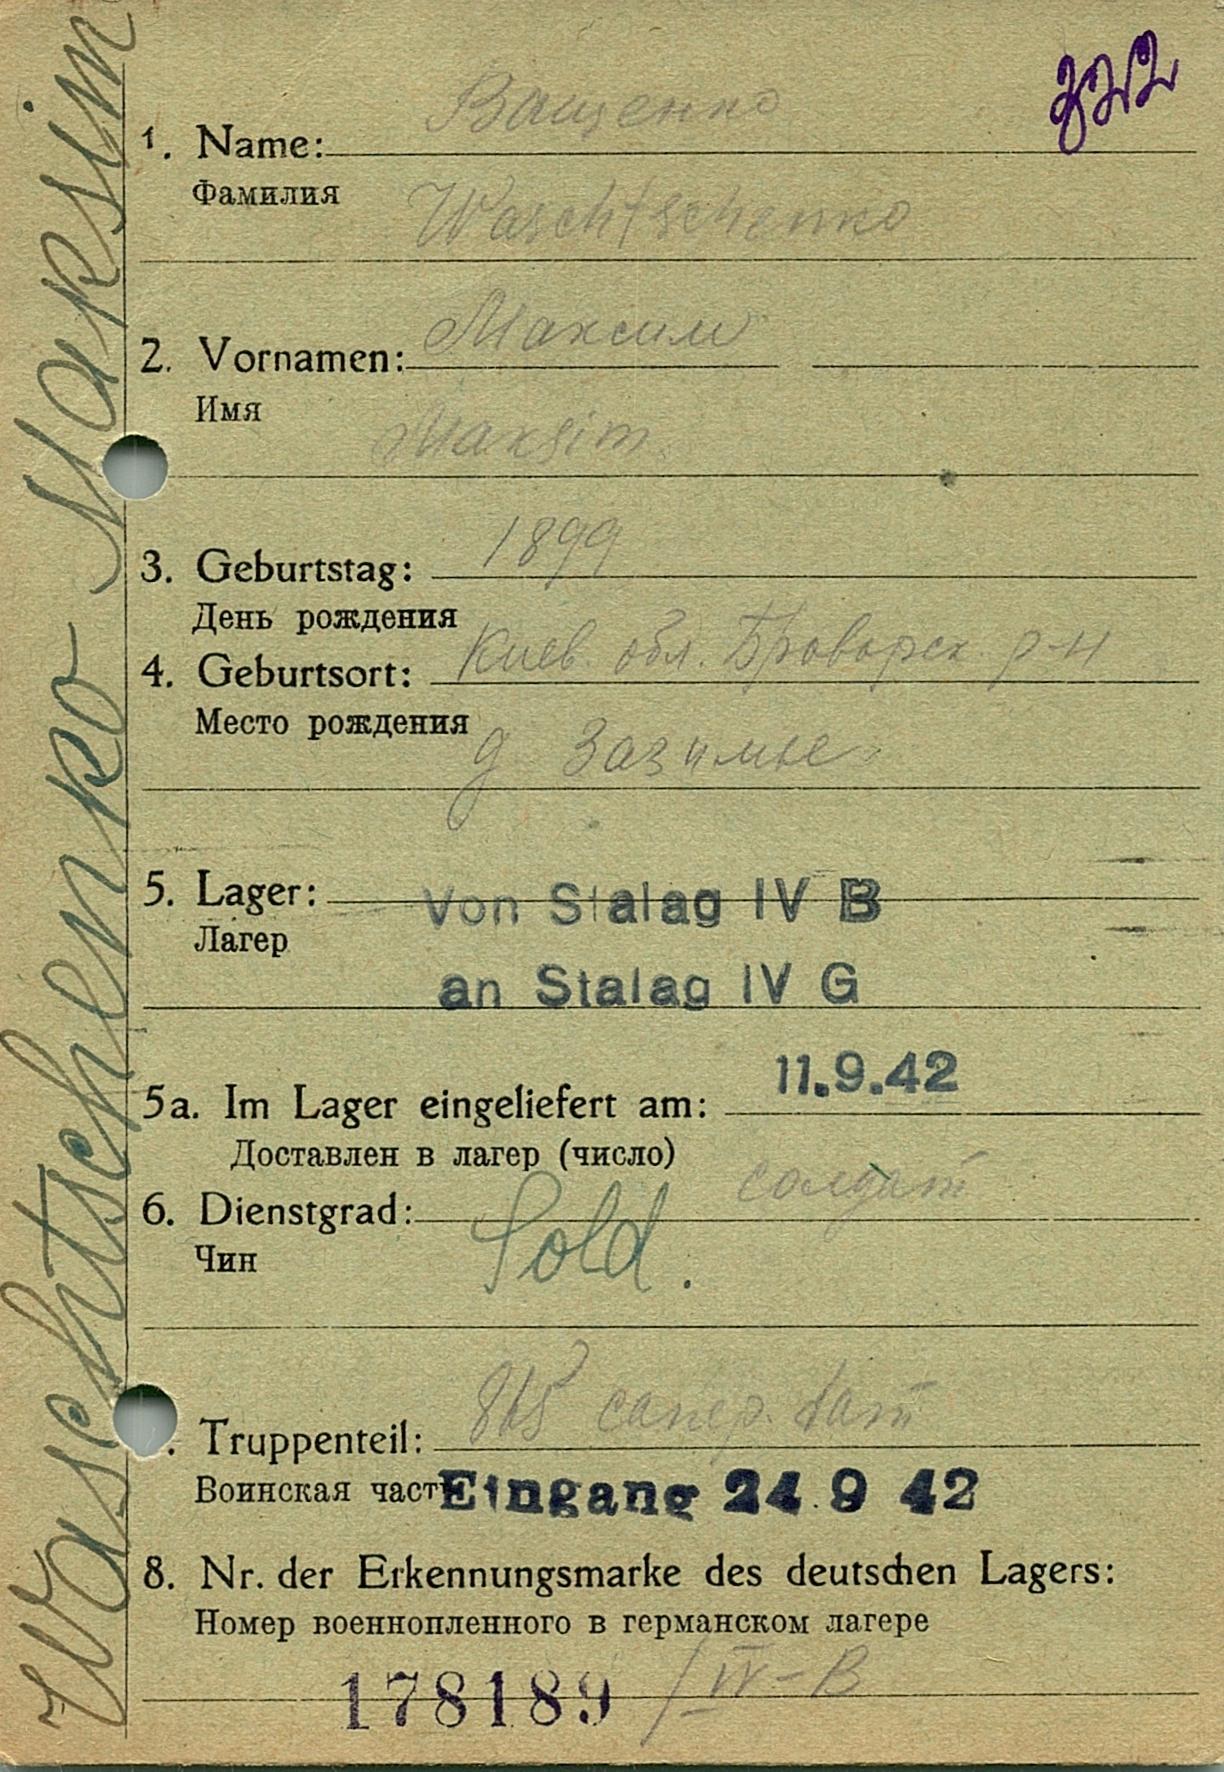 322
Ващенко
1. Name:
Фамилия
Waschtschenko
Максим
2. Vornamen:
Имя
Maksim
1899
3. Geburtstag:
День рождения
Киев. обл Броварск. р-н
4. Geburtsort:
Место рождения
д Зазимье
5. Lager: Von Stalag IV B
Лагер
an Stalag IV G
11.9.42
5a. Im Lager eingeliefert am:
Доставлен в лагер (число)
солдат
6. Dienstgrad: Sold.
Чин
865 сапер. бат
. Truppenteil:
Воинская част Eingang 24.9 42
8. Nr. der Erkennungsmarke des deutschen Lagers:
Номер военнопленного в германском лагере
178189 / IV-B
Waschtschenko Maksim